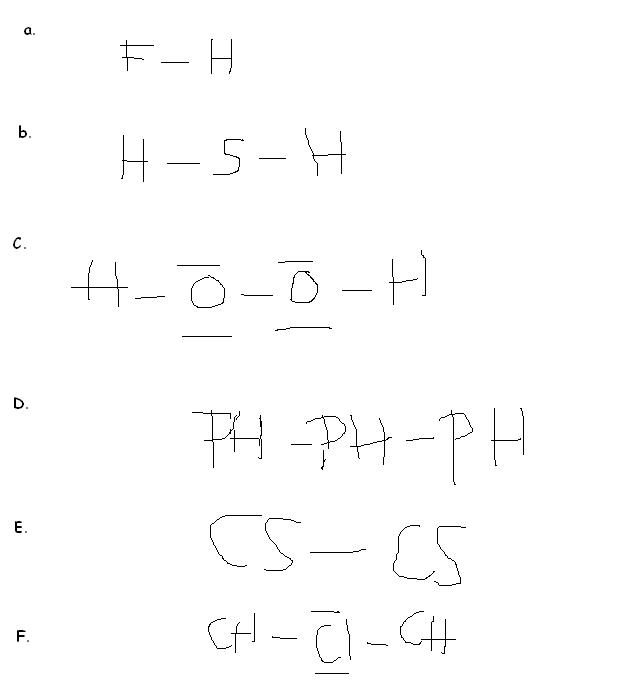 a.
F — H
b.
H — S — H
C.
H — O — O — H
D.
PH — PH — PH
E.
CS — CS
F.
CH — Cl — CH